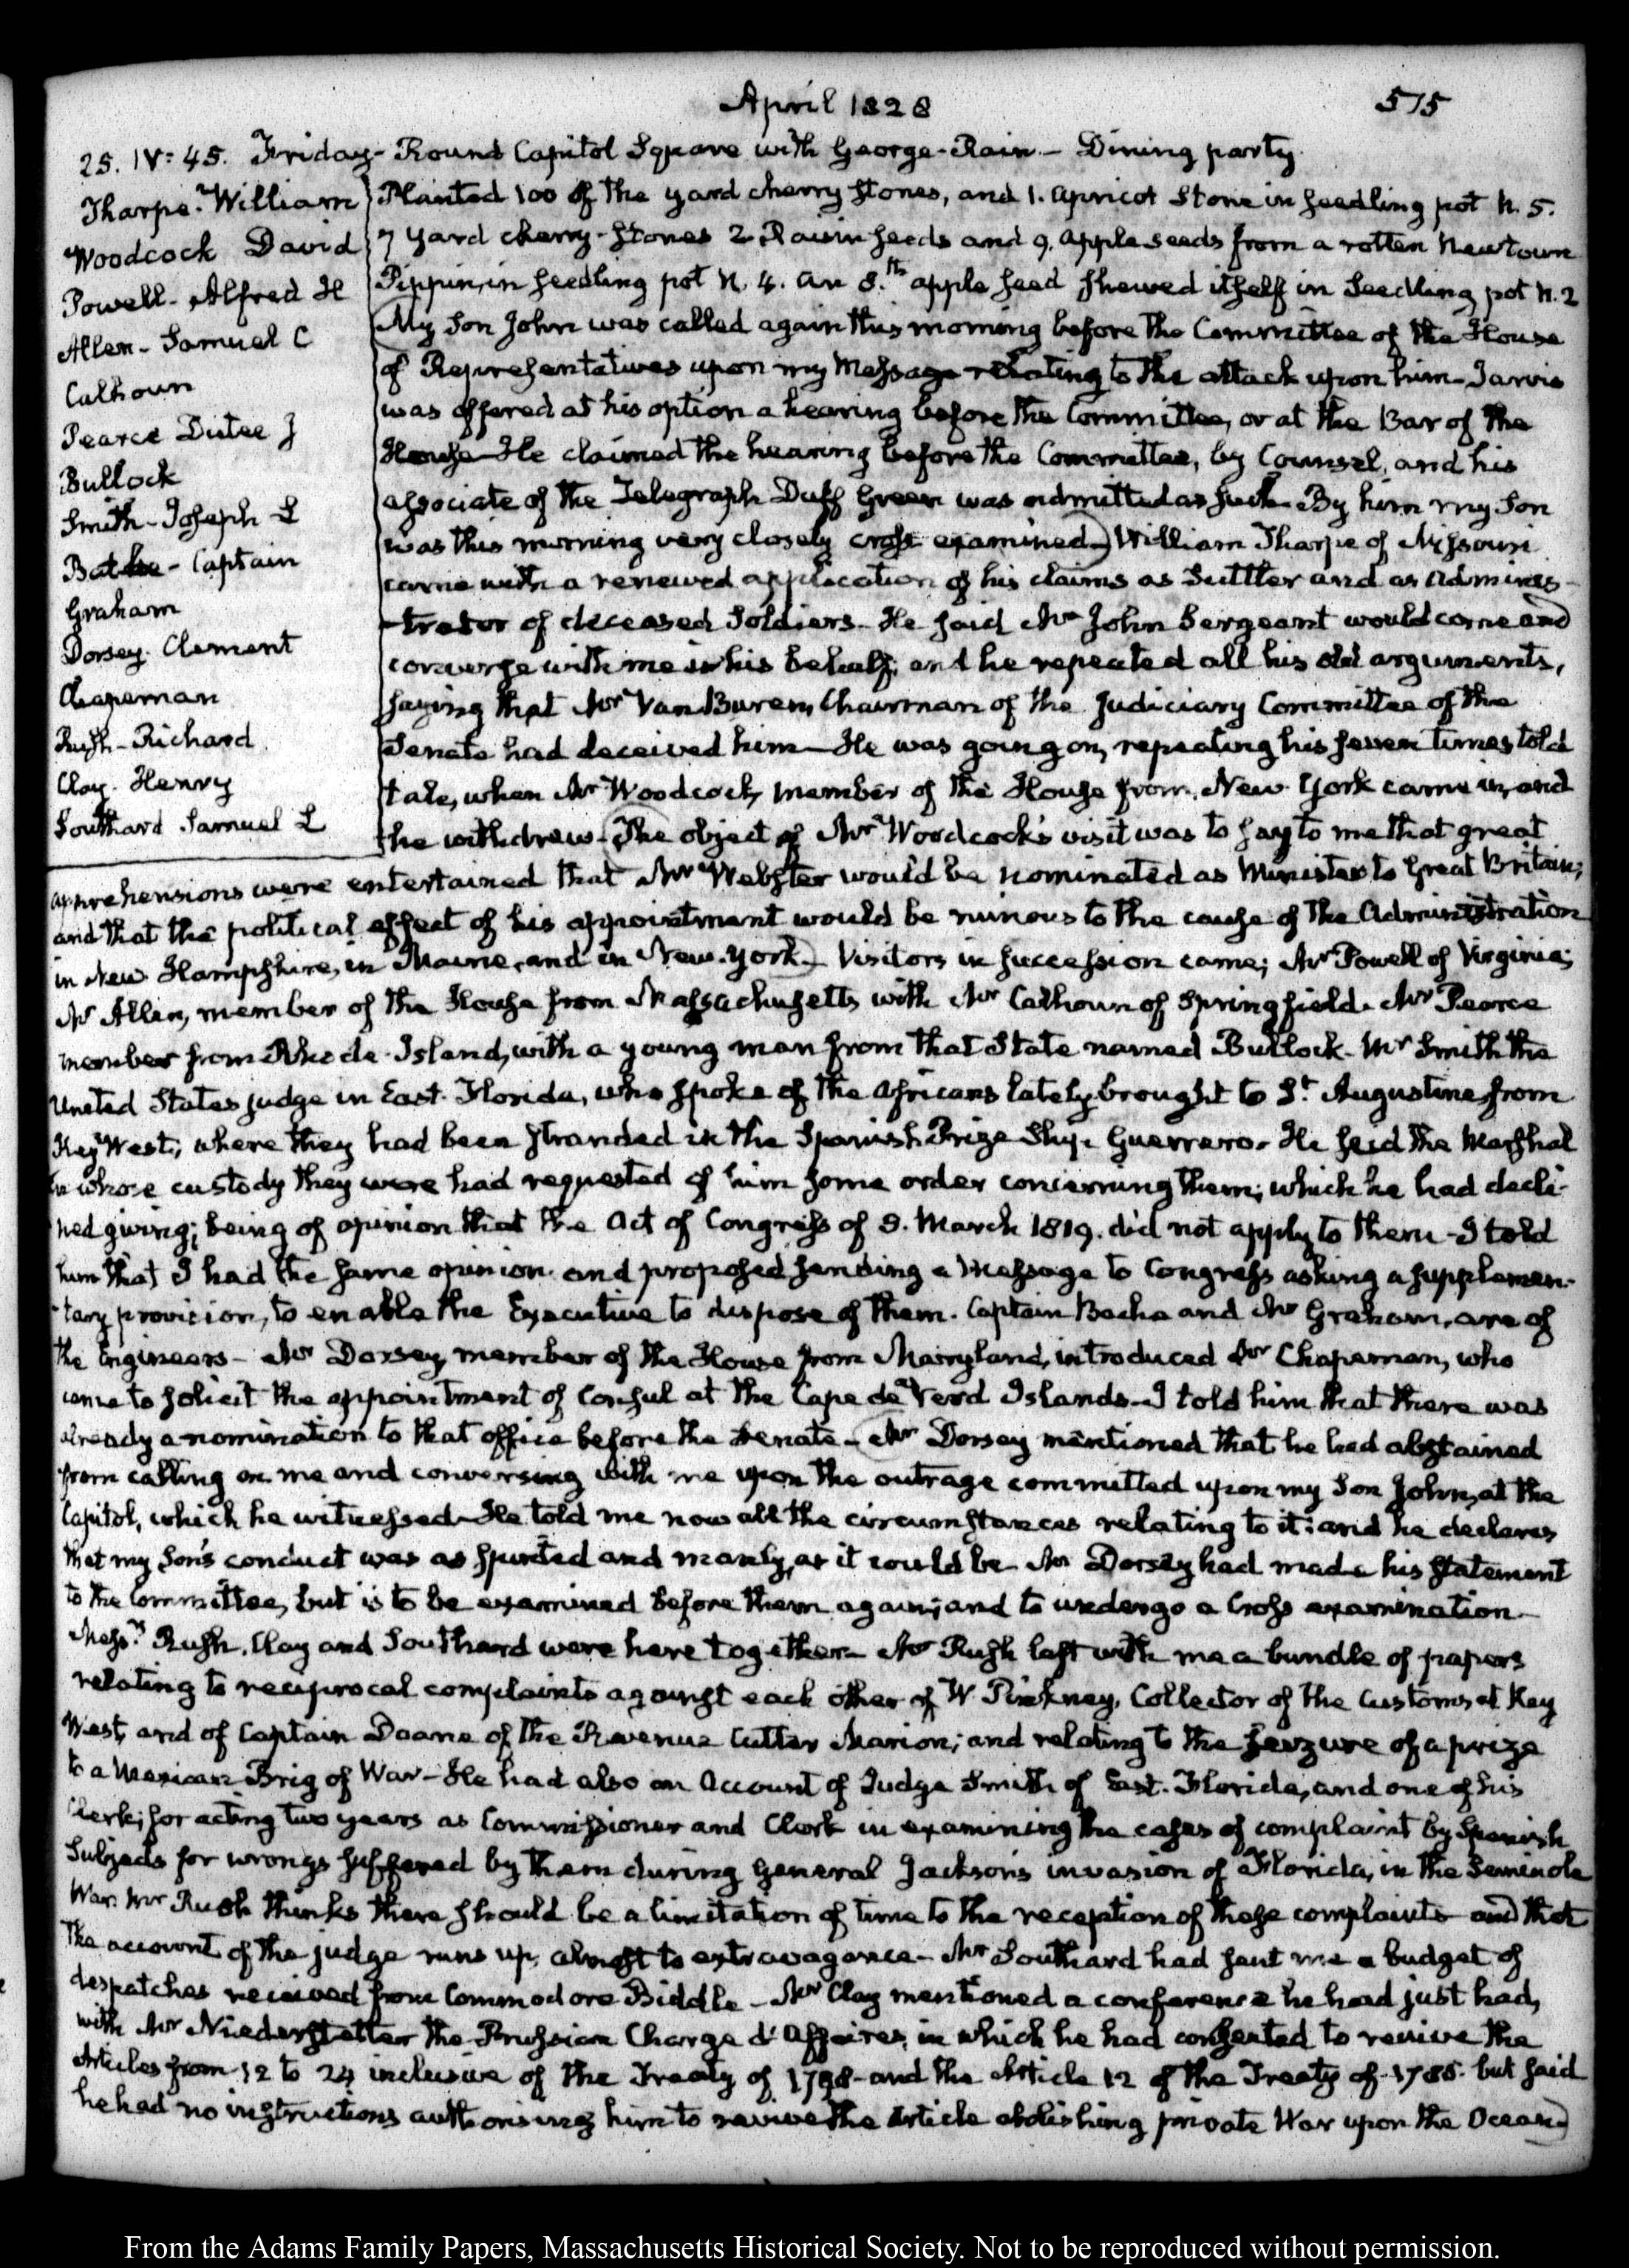 April 1828
515
25. IV: 45. Friday- Round Capitol Square with George- Rain.- Dining party.
Tharpe. William
Woodcock David
Powell- Alfred H
Allen- Samuel C
Calhoun
Pearce Dutee J
Bullock
Smith- Joseph L
Bache- Captain
Graham
Dorsey. Clement
Chapeman
Rush- Richard
Clay. Henry
Southard Samuel L
Planted 100 of the yard cherry stones, and 1. apricot stone in seedling pot N. 5.
7 yard cherry-stones 2 Raisin seeds and 9. apple seeds from a rotten Newtown
Pippin, in seedling pot N. 4. An 8.th apple seed shewed itself in Seedling pot N. 2
My Son John was called again this morning before the Committee of the House
of Representatives upon my Message relating to the attack upon him- Jarvis
was offered at his option a hearing before the Committee, or at the Bar of the
House- He claimed the hearing before the Committee, by Counsel, and his
associate of the Telegraph Duff Green was admitted as such- By him my Son
was this morning very closely cross examined- William Tharpe of Missouri
came with a renewed application of his claims as Suttler and as Adminis-
-trator of deceased Soldiers- He said Mr John Sergeant would come and
converse with me in his behalf; and he repeated all his old arguments,
saying that Mr Van Buren, Chairman of the Judiciary Committee of the
Senate had deceived him- He was going on, repeating his seven times told
tale, when Mr Woodcock, member of the House from New-York came in, and
he withdrew- The object of Mr Woodcock's visit was to say to me that great
apprehensions were entertained that Mr Webster would be nominated as Minister to Great Britain;
and that the political effect of his appointment would be ruinous to the cause of the Administration
in New Hampshire, in Maine, and in New-York- Visitors in succession came; Mr Powell of Virginia;
Mr Allen, member of the House from Massachusetts with Mr Calhoun of Springfield. Mr Pearce
member from Rhode-Island, with a young man from that State named Bullock- Mr Smith the
United States judge in East-Florida, who spoke of the Africans lately brought to St Augustine from
Key West, where they had been stranded in the Spanish Prize Ship Guerrero. He said the Marshal
in whose custody they were had requested of him some order concerning them; which he had decli-
ned giving; being of opinion that the Act of Congress of 3. March 1819. did not apply to them- I told
him that I had the same opinion and proposed sending a Message to Congress asking a supplemen-
-tary provision, to enable the Executive to dispose of them. Captain Bache and Mr Graham, are of
the Engineers- Mr Dorsey, member of the House from Maryland, introduced Mr Chapeman, who
came to solicit the appointment of Consul at the Cape de Verd Islands- I told him that there was
already a nomination to that office before the Senate- Mr Dorsey mentioned that he had abstained
from calling on me and conversing with me upon the outrage committed upon my Son John, at the
Capitol, which he witnessed- He told me now all the circumstances relating to it: and he declares
that my Son's conduct was as spirited and manly, as it could be- Mr Dorsey had made his statement
to the Committee, but is to be examined before them again; and to undergo a Cross examination-
Messrs Rush, Clay and Southard were here together- Mr Rush left with me a bundle of papers
relating to reciprocal complaints against each other of W. Pinkney, Collector of the Customs at Key
West, and of Captain Doane of the Revenue Cutter Marion; and relating to the seizure of a prize
to a Mexican Brig of War- He had also an Account of Judge Smith of East-Florida, and one of his
Clerk; for acting two years as Commissioner and Clerk in examining the cases of complaint by Spanish
Subjects for wrongs suffered by them during General Jackson's invasion of Florida, in the Seminole
War. Mr Rush thinks there should be a limitation of time to the reception of these complaints and that
the account of the judge runs up almost to extravagance- Mr Southard had sent me a budget of
despatches received from Commodore Biddle- Mr Clay mentioned a conference he had just had,
with Mr Niederstetter the Prussian Chargé d'Affaires, in which he had consented to revive the
Articles from 12 to 24 inclusive of the Treaty of 1798- and the Article 12 of the Treaty of 1785. but said
he had no instructions authorising him to revive the Article abolishing private War upon the Ocean-
From the Adams Family Papers, Massachusetts Historical Society. Not to be reproduced without permission.